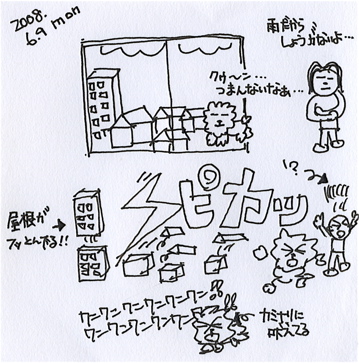 2008.
6.9 mon
雨だから
しょうがないよ…
クゥ〜ン…
つまんないなぁ…
ピカッ
!?
屋根が
フッとんでる!!
ワンワンワンワンワンワン
ワンワンワンワンワンワン
カミナリに
吠えてる